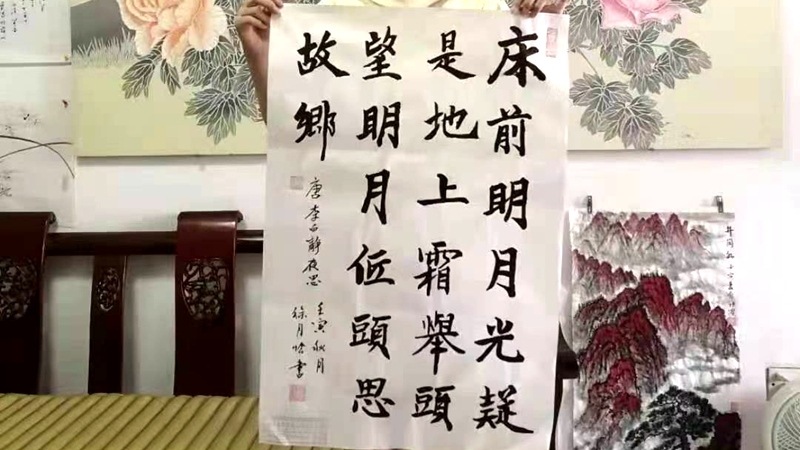 床前明月光疑
是地上霜舉頭
望明月低頭思
故鄉
唐李白靜夜思
壬寅秋月
徐月悟書